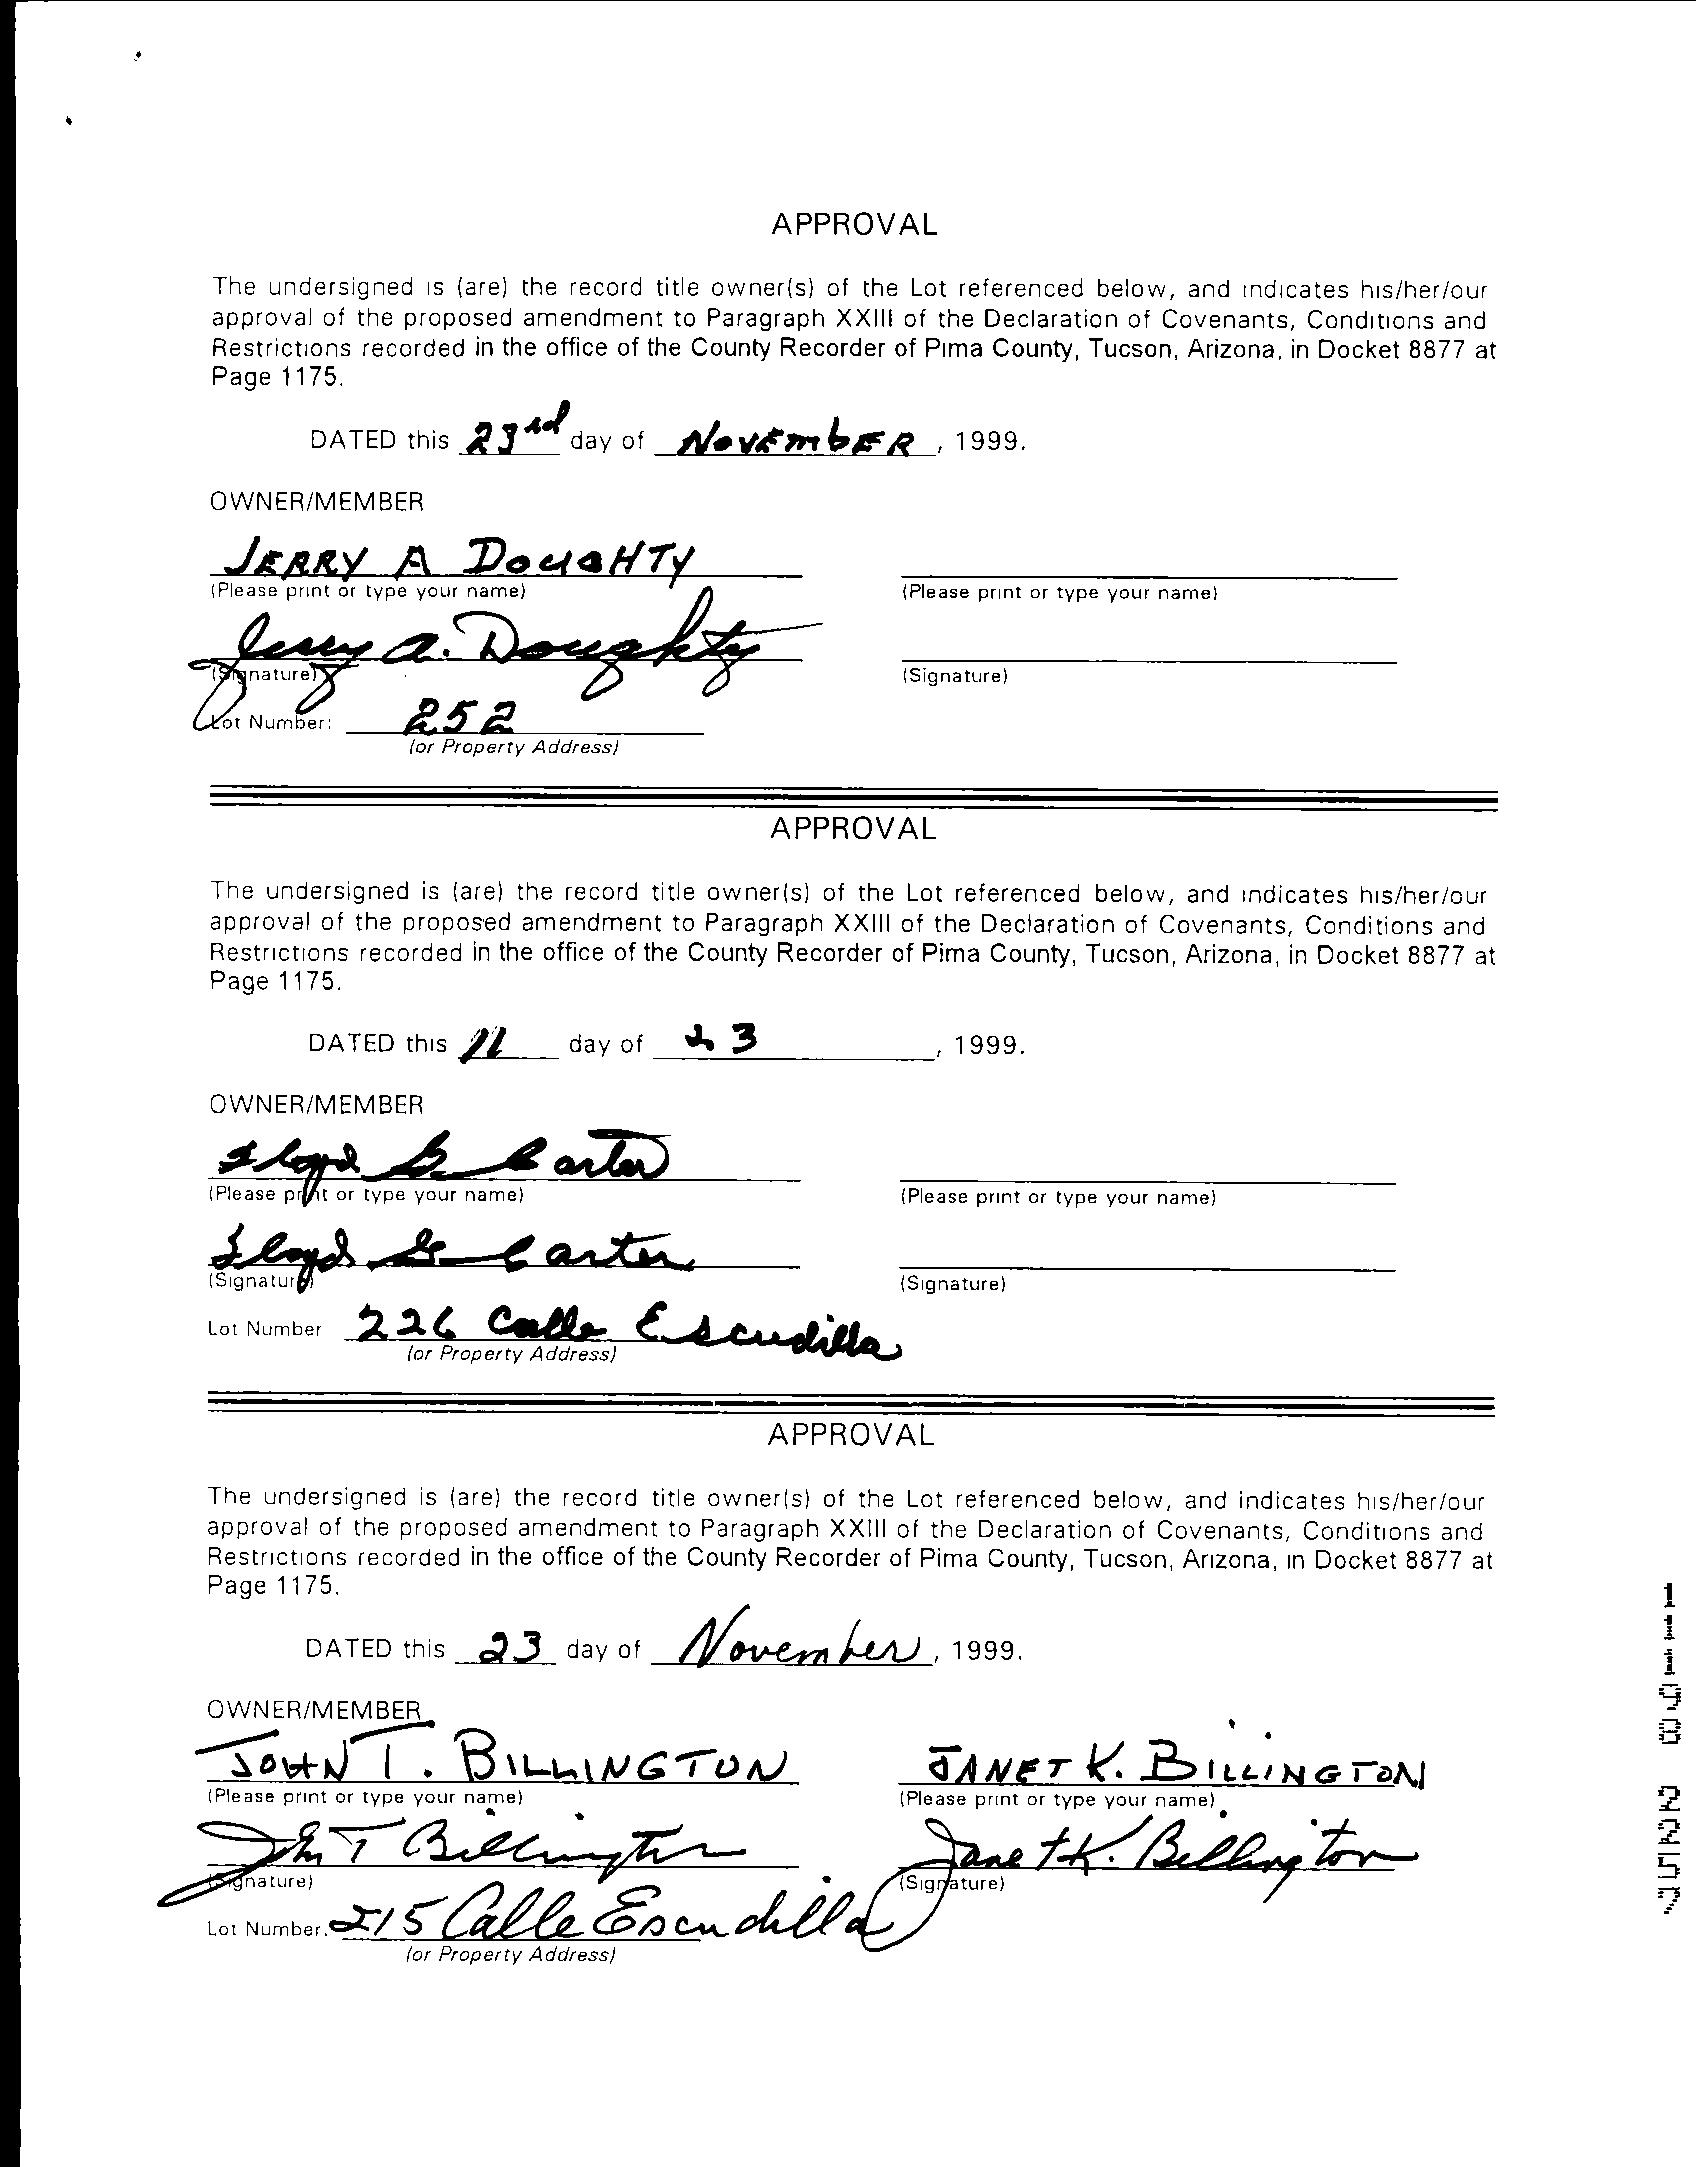 APPROVAL
The undersigned is (are) the record title owner(s) of the Lot referenced below, and indicates his/her/our
approval of the proposed amendment to Paragraph XXIII of the Declaration of Covenants, Conditions and
Restrictions recorded in the office of the County Recorder of Pima County, Tucson, Arizona, in Docket 8877 at
Page 1175.
DATED this 23rd day of NOVEMbER, 1999.
OWNER/MEMBER
JERRY A DOUGHTY
(Please print or type your name) (Please print or type your name)
Jerry A. Doughty
(Signature) (Signature)
Lot Number: 252
(or Property Address)
APPROVAL
The undersigned is (are) the record title owner(s) of the Lot referenced below, and indicates his/her/our
approval of the proposed amendment to Paragraph XXIII of the Declaration of Covenants, Conditions and
Restrictions recorded in the office of the County Recorder of Pima County, Tucson, Arizona, in Docket 8877 at
Page 1175.
DATED this 11 day of 23, 1999.
OWNER/MEMBER
Lloyd G. Carter
(Please print or type your name) (Please print or type your name)
Lloyd G Carter
(Signature) (Signature)
Lot Number 226 Calle Escudilla
(or Property Address)
APPROVAL
The undersigned is (are) the record title owner(s) of the Lot referenced below, and indicates his/her/our
approval of the proposed amendment to Paragraph XXIII of the Declaration of Covenants, Conditions and
Restrictions recorded in the office of the County Recorder of Pima County, Tucson, Arizona, in Docket 8877 at
Page 1175.
DATED this 23 day of November, 1999.
OWNER/MEMBER
JOHN T. BILLINGTON JANET K. BILLINGTON
(Please print or type your name) (Please print or type your name)
John T Billington Janet K. Billington
(Signature) (Signature)
Lot Number. 215 Calle Escudilla
(or Property Address)